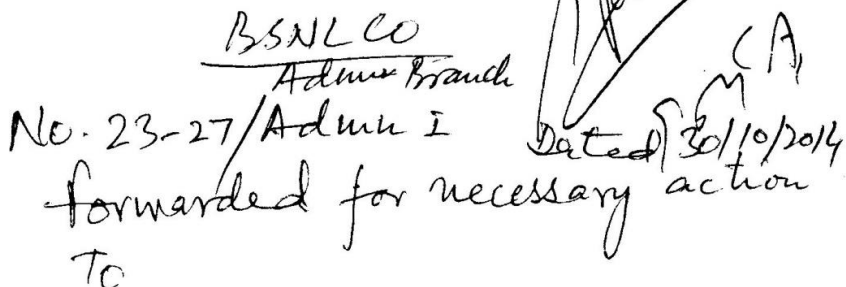 BSNL CO
Admn Branch
No. 23-27/Admn I Dated 30/10/2014
forwarded for necessary action
To